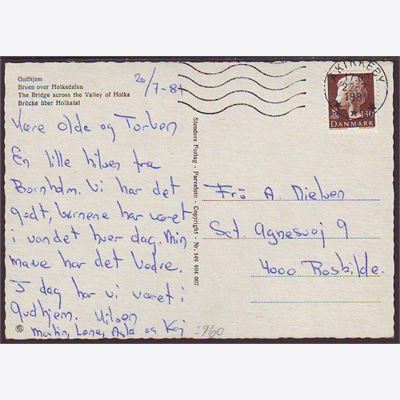 Gudhjem
Broen over Holkadalen
The Bridge across the Valley of Holka
Brücke über Holkatal
20/7-81
Kære olde og Torben
En lille hilsen fra
Bornholm. Vi har det
godt, børnene har været
i vandet hver dag. Min
mave har det bedre.
I dag har vi været i
Gudhjem. Hilsen
Martin, Lone, Asla og Kaj
1960
Stenders Forlag - Farvefoto - Copyright - Nr. 249 404 007
KIRKEBY
130
DANMARK
Fru A. Nielsen
Sct. Agnesvej 9
4000 Roskilde.